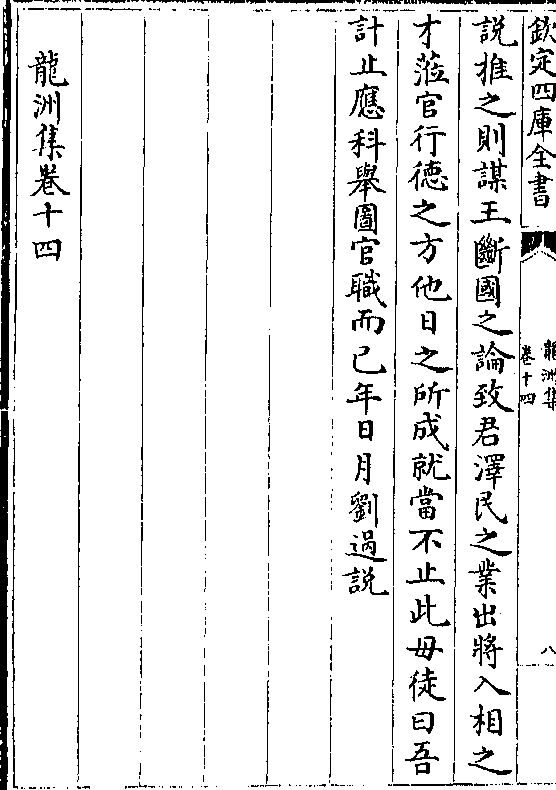 欽定四庫全書
龍洲集
卷十四
八
說推之則謀王斷國之論致君澤民之業出將入相之
才蒞官行德之方他日之所成就當不止此毋徒曰吾
計止應科舉圖官職而已年日月劉過説
龍洲集卷十四